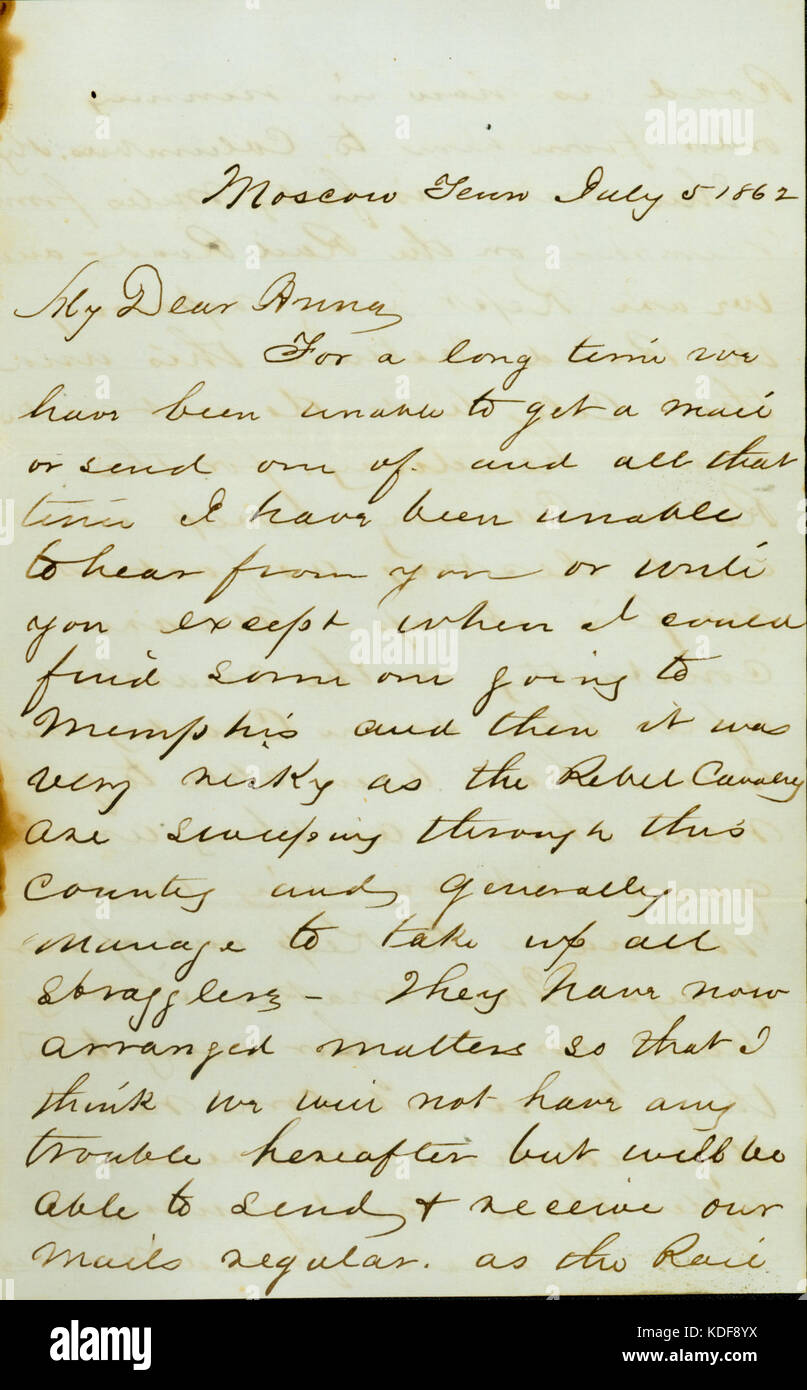 Moscow Tenn July 5 1862
My Dear Anna
For a long time we
have been unable to get a mail
or send one of. and all that
time I have been unable
to hear from you or write
you except when I could
find some one going to
Memphis and then it was
very risky as the Rebel Cavalry
are sweeping through this
County and generally
manage to take up all
stragglers - They have now
arranged matters so that I
think we will not have any
trouble hereafter but will be
able to send & receive our
mails regular. as the Rail
alamy
alamy stock photo
KDF8YX
www.alamy.com